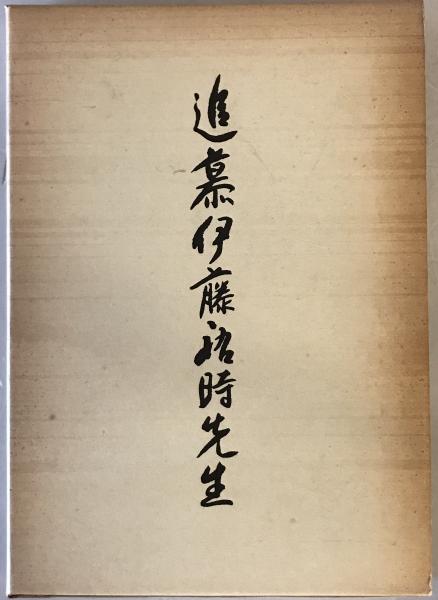 追慕伊藤祐時先生